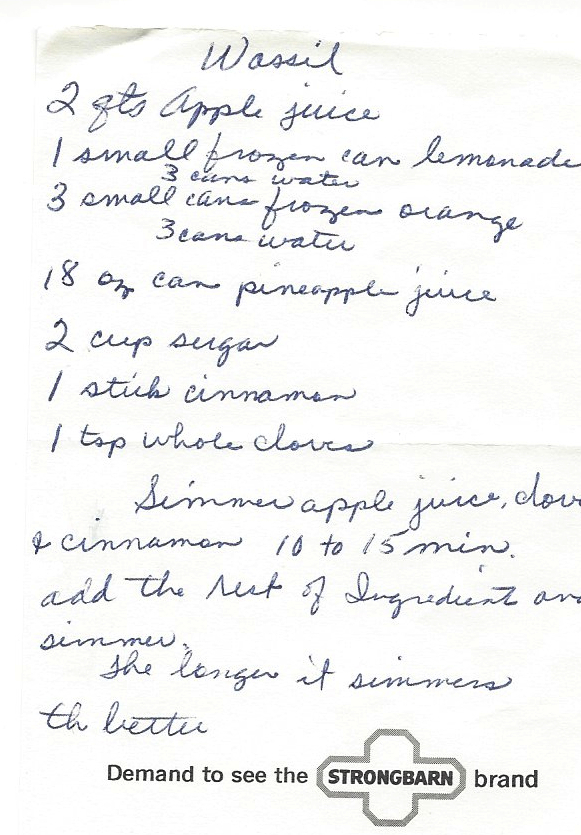 Wassil
2 qts Apple juice
1 small frozen can lemonade
3 cans water
3 small cans frozen orange
3 cans water
18 oz can pineapple juice
2 cup sugar
1 stick cinnamon
1 tsp whole cloves
Simmer apple juice, clov
& cinnamon 10 to 15 min.
add the rest of Ingredient and
simmer.
The longer it simmers
th better
Demand to see the STRONGBARN brand